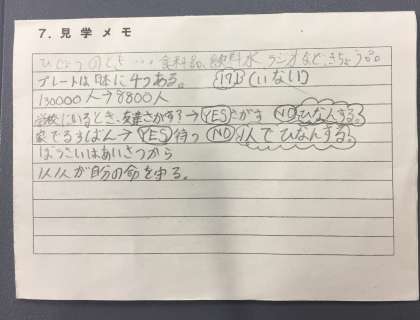 7. 見学メモ
ひじょうのとき…食料品、飲料水、ラジオなど、きちょう品。
プレートは日本に4つある。
130000人→8800人
学校にいるとき、友達さがす?→YES さがす NO ひなんする。
家でるすばん→YES 待つ NO 1人でひなんする。
ぼうさいはあいさつから
1人1人が自分の命を守る。